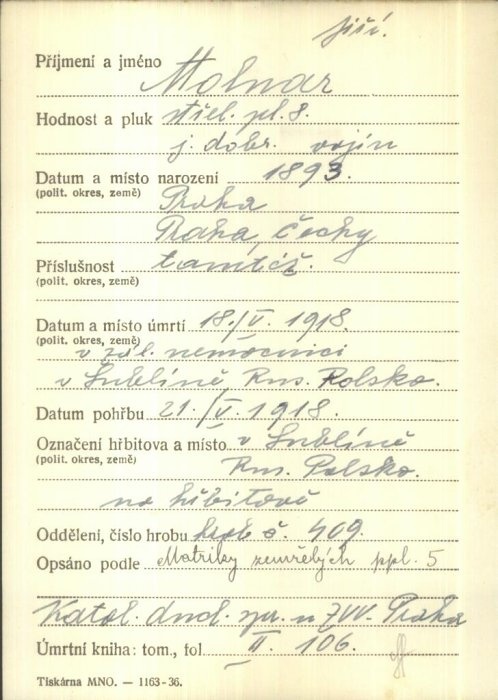 Jiří.
Příjmení a jméno Molnar
Hodnost a pluk střel. pl. 8.
j. dobr. vojín
Datum a místo narození 1893.
(polit. okres, země) Praha
Praha, Čechy
Příslušnost tamtéž.
(polit. okres, země)
Datum a místo úmrtí 18./V. 1918.
(polit. okres, země)
v zál. nemocnici
v Lublíně, Rus. Polsko.
Datum pohřbu 21./V. 1918.
Označení hřbitova a místo v Lublíně
(polit. okres, země) Rus. Polsko.
na hřbitově
Oddělení, číslo hrobu hrob č. 409.
Opsáno podle Matriky zemřelých ppl. 5
Katol. duch. spr. u ZVV. Praha
Úmrtní kniha: tom., fol II. 106.
Tiskárna MNO. — 1163-36.